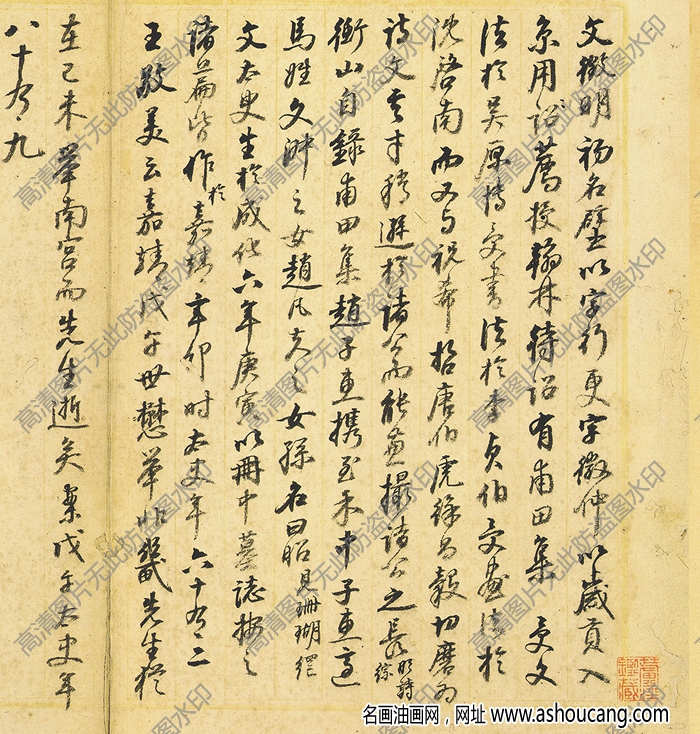 文徵明初名壁以字行更字徵仲以歲貢入
京用詔薦授翰林待詔有甫田集 受文
法於吳原博受書法於李貞伯受畫法於
沈啓南而又与祝希哲唐伯虎徐昌穀切磨为
詩文其才稍遜於諸公而能兼撮諸公之長明詩綜
衡山自錄甫田集趙子惠携至禾中子惠適
馬姓文淑之女趙凡夫之女孫名曰昭見珊瑚網
文太史生於成化六年庚寅以冊中墓誌按之
諸篇皆作於嘉靖辛卯时太史年六十有二
王敬美云嘉靖戊午世懋舉㡳幾先生猶
在己未舉南宮而先生逝矣案戊午太史年
八十有九
高清图片无此防盗图水印
名画油画网，网址 www.ashoucang.com